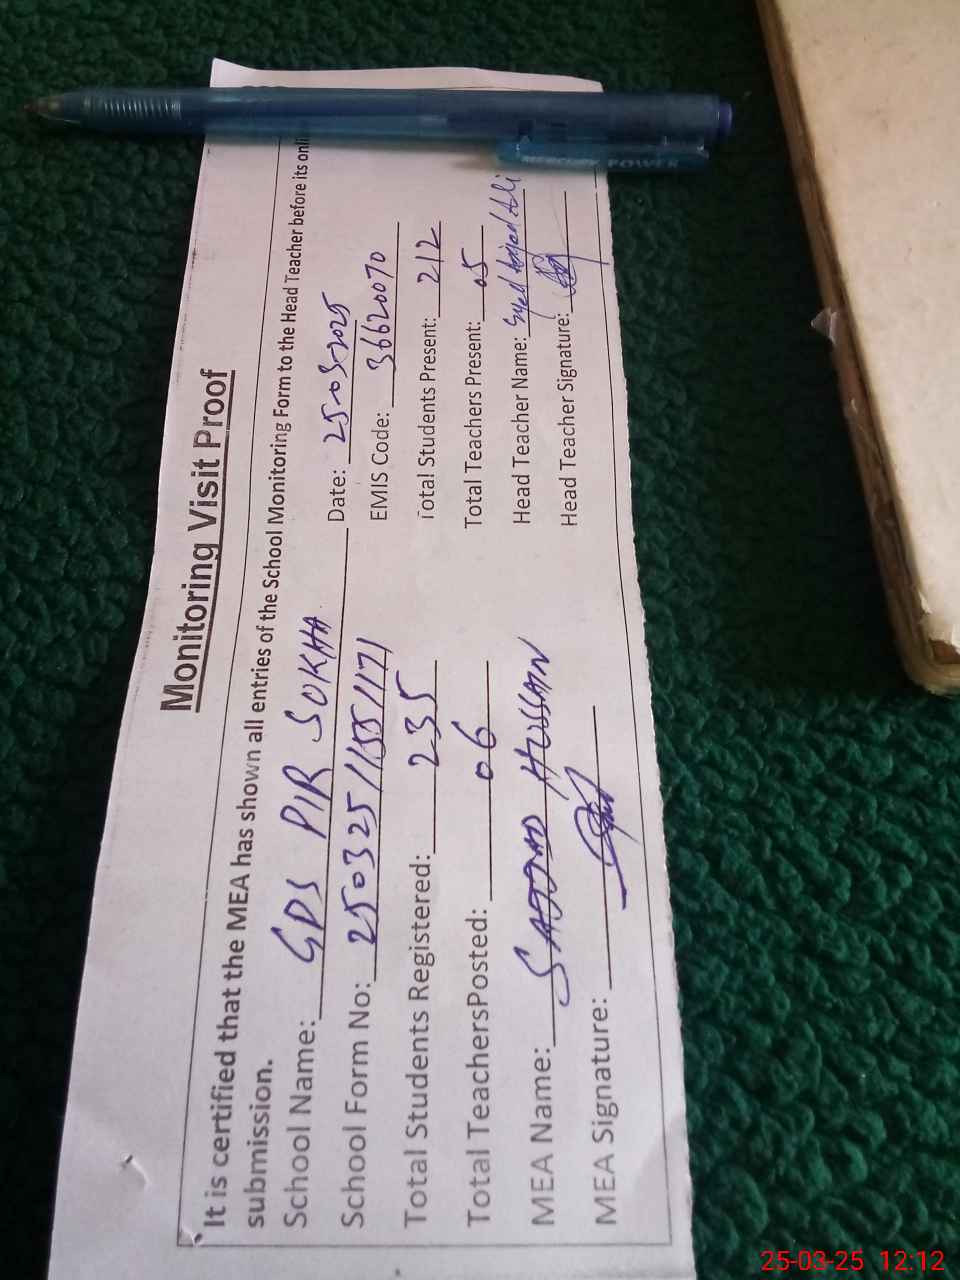 Monitoring Visit Proof
It is certified that the MEA has shown all entries of the School Monitoring Form to the Head Teacher before its onli
submission.
School Name: GPS PIR SOKHA Date: 25-03-2025
School Form No: 250325 EMIS Code: 36620070
Total Students Registered: 235 Total Students Present: 212
Total TeachersPosted: 06 Total Teachers Present: 05
MEA Name: SAJJAD HUSSAIN Head Teacher Name: Syed Ali
MEA Signature: Head Teacher Signature:
MERCURY POWER
25-03-25 12:12